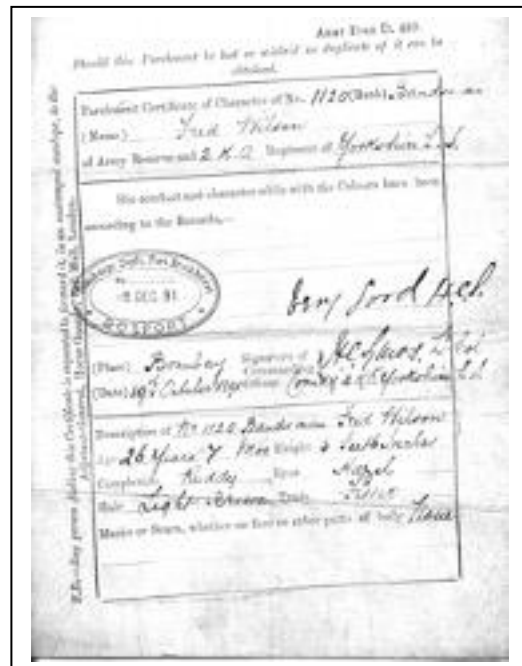 Should this Parchment be lost or mislaid no duplicate of it can be
obtained.
Parchment Certificate of Character of No. 1120 (Rank) Bandsman
(Name) Fred Wilson
of Army Reserve and 2 K.O. Regiment of Yorkshire L.I.
His conduct and character while with the Colours have been
according to the Records,—
8 DEC 91
GOSPORT
Very Good
(Place) Bombay Signature of
(Date) 19th October Commanding Officer Yorkshire L.I.
Description of No. 1120 Bandsman Fred Wilson
Age 26 Years 7 Height 5 feet inches
Complexion Ruddy Eyes Hazel
Hair Light Brown Trade
Marks or Scars, whether on face or other parts of body None
Any person finding this Certificate is requested to forward it, in an unstamped envelope, to the
Adjutant-General, Horse Guards, Pall Mall, London.